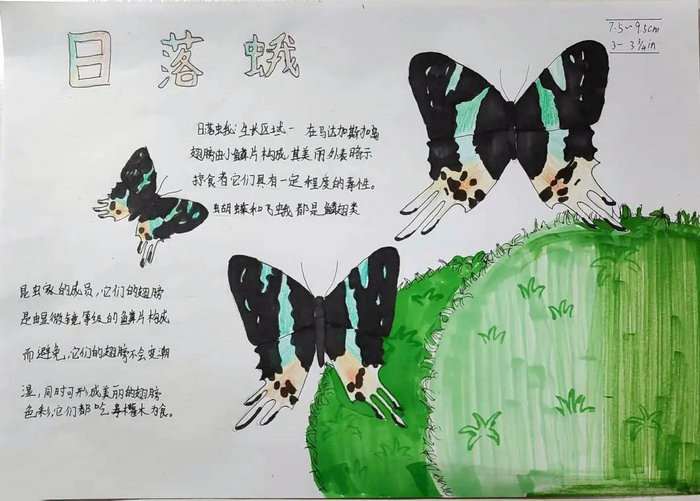 日落蛾
7.5-9.5cm
3-3¾in
日落蛾生长区域一在马达加斯加岛
翅膀由小鳞片构成其美丽外表暗示
掠食者它们具有一定程度的毒性。
蝴蝶和飞蛾都是鳞翅类
昆虫家的成员,它们的翅膀
是由显微镜等级的鳞片构成
而避免,它们的翅膀不会变潮
湿,同时可形成美丽的翅膀
色彩,它们都吃毒灌木为食。